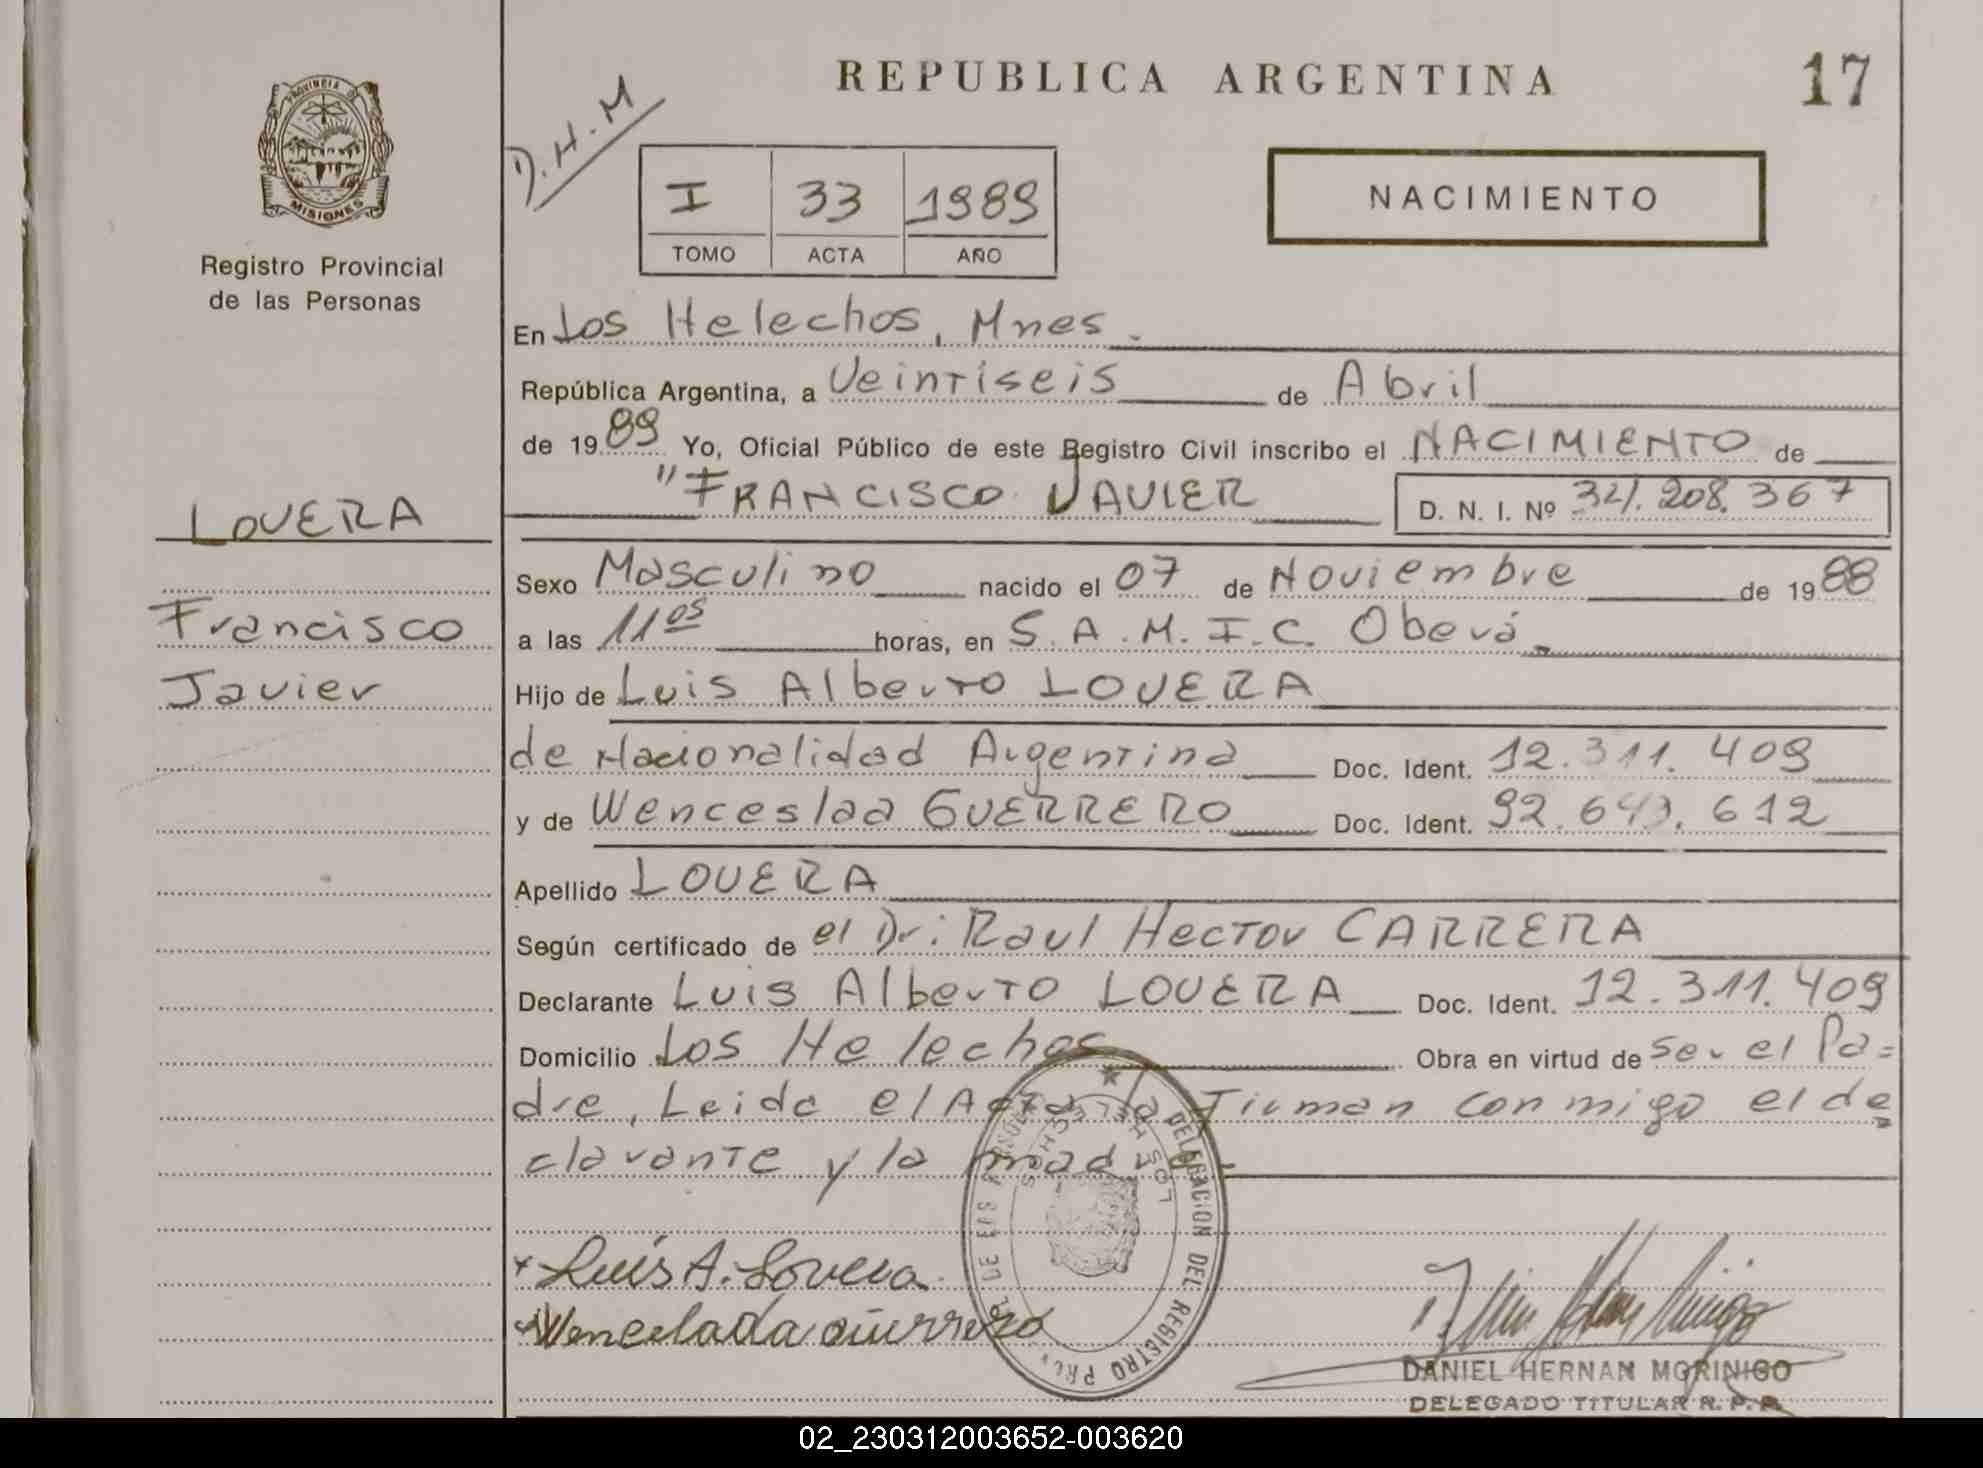 REPUBLICA ARGENTINA
17
D.H.M
PROVINCIA DE
MISIONES
Registro Provincial
de las Personas
I 33 1989
TOMO ACTA AÑO
NACIMIENTO
En Los Helechos, Mnes.
República Argentina, a Veintiseis de Abril
de 1989 Yo, Oficial Público de este Registro Civil inscribo el NACIMIENTO de
"FRANCISCO JAVIER D. N. I. Nº 34.208.367
LOVERA
Francisco
Javier
Sexo Masculino nacido el 07 de Noviembre de 1988
a las 11 05 horas, en S.A.M.I.C. Oberá
Hijo de Luis Alberto LOVERA
de Nacionalidad Argentina Doc. Ident. 12.311.409
y de Wenceslaa GUERRERO Doc. Ident. 92.643.612
Apellido LOVERA
Según certificado de el Dr: Raul Hector CARRERA
Declarante Luis Alberto LOVERA Doc. Ident. 12.311.409
Domicilio Los Helechos Obra en virtud de ser el Pa=
dre, Leida el Acta la Firman conmigo el de
clarante y la madre
DELEGACION DEL REGISTRO PROV DE LAS PERSONAS
LOS HELECHOS
Luis A. Lovera
Wencelada Guerrero
DANIEL HERNAN MORINIGO
DELEGADO TITULAR R. P. P.
02_230312003652-003620